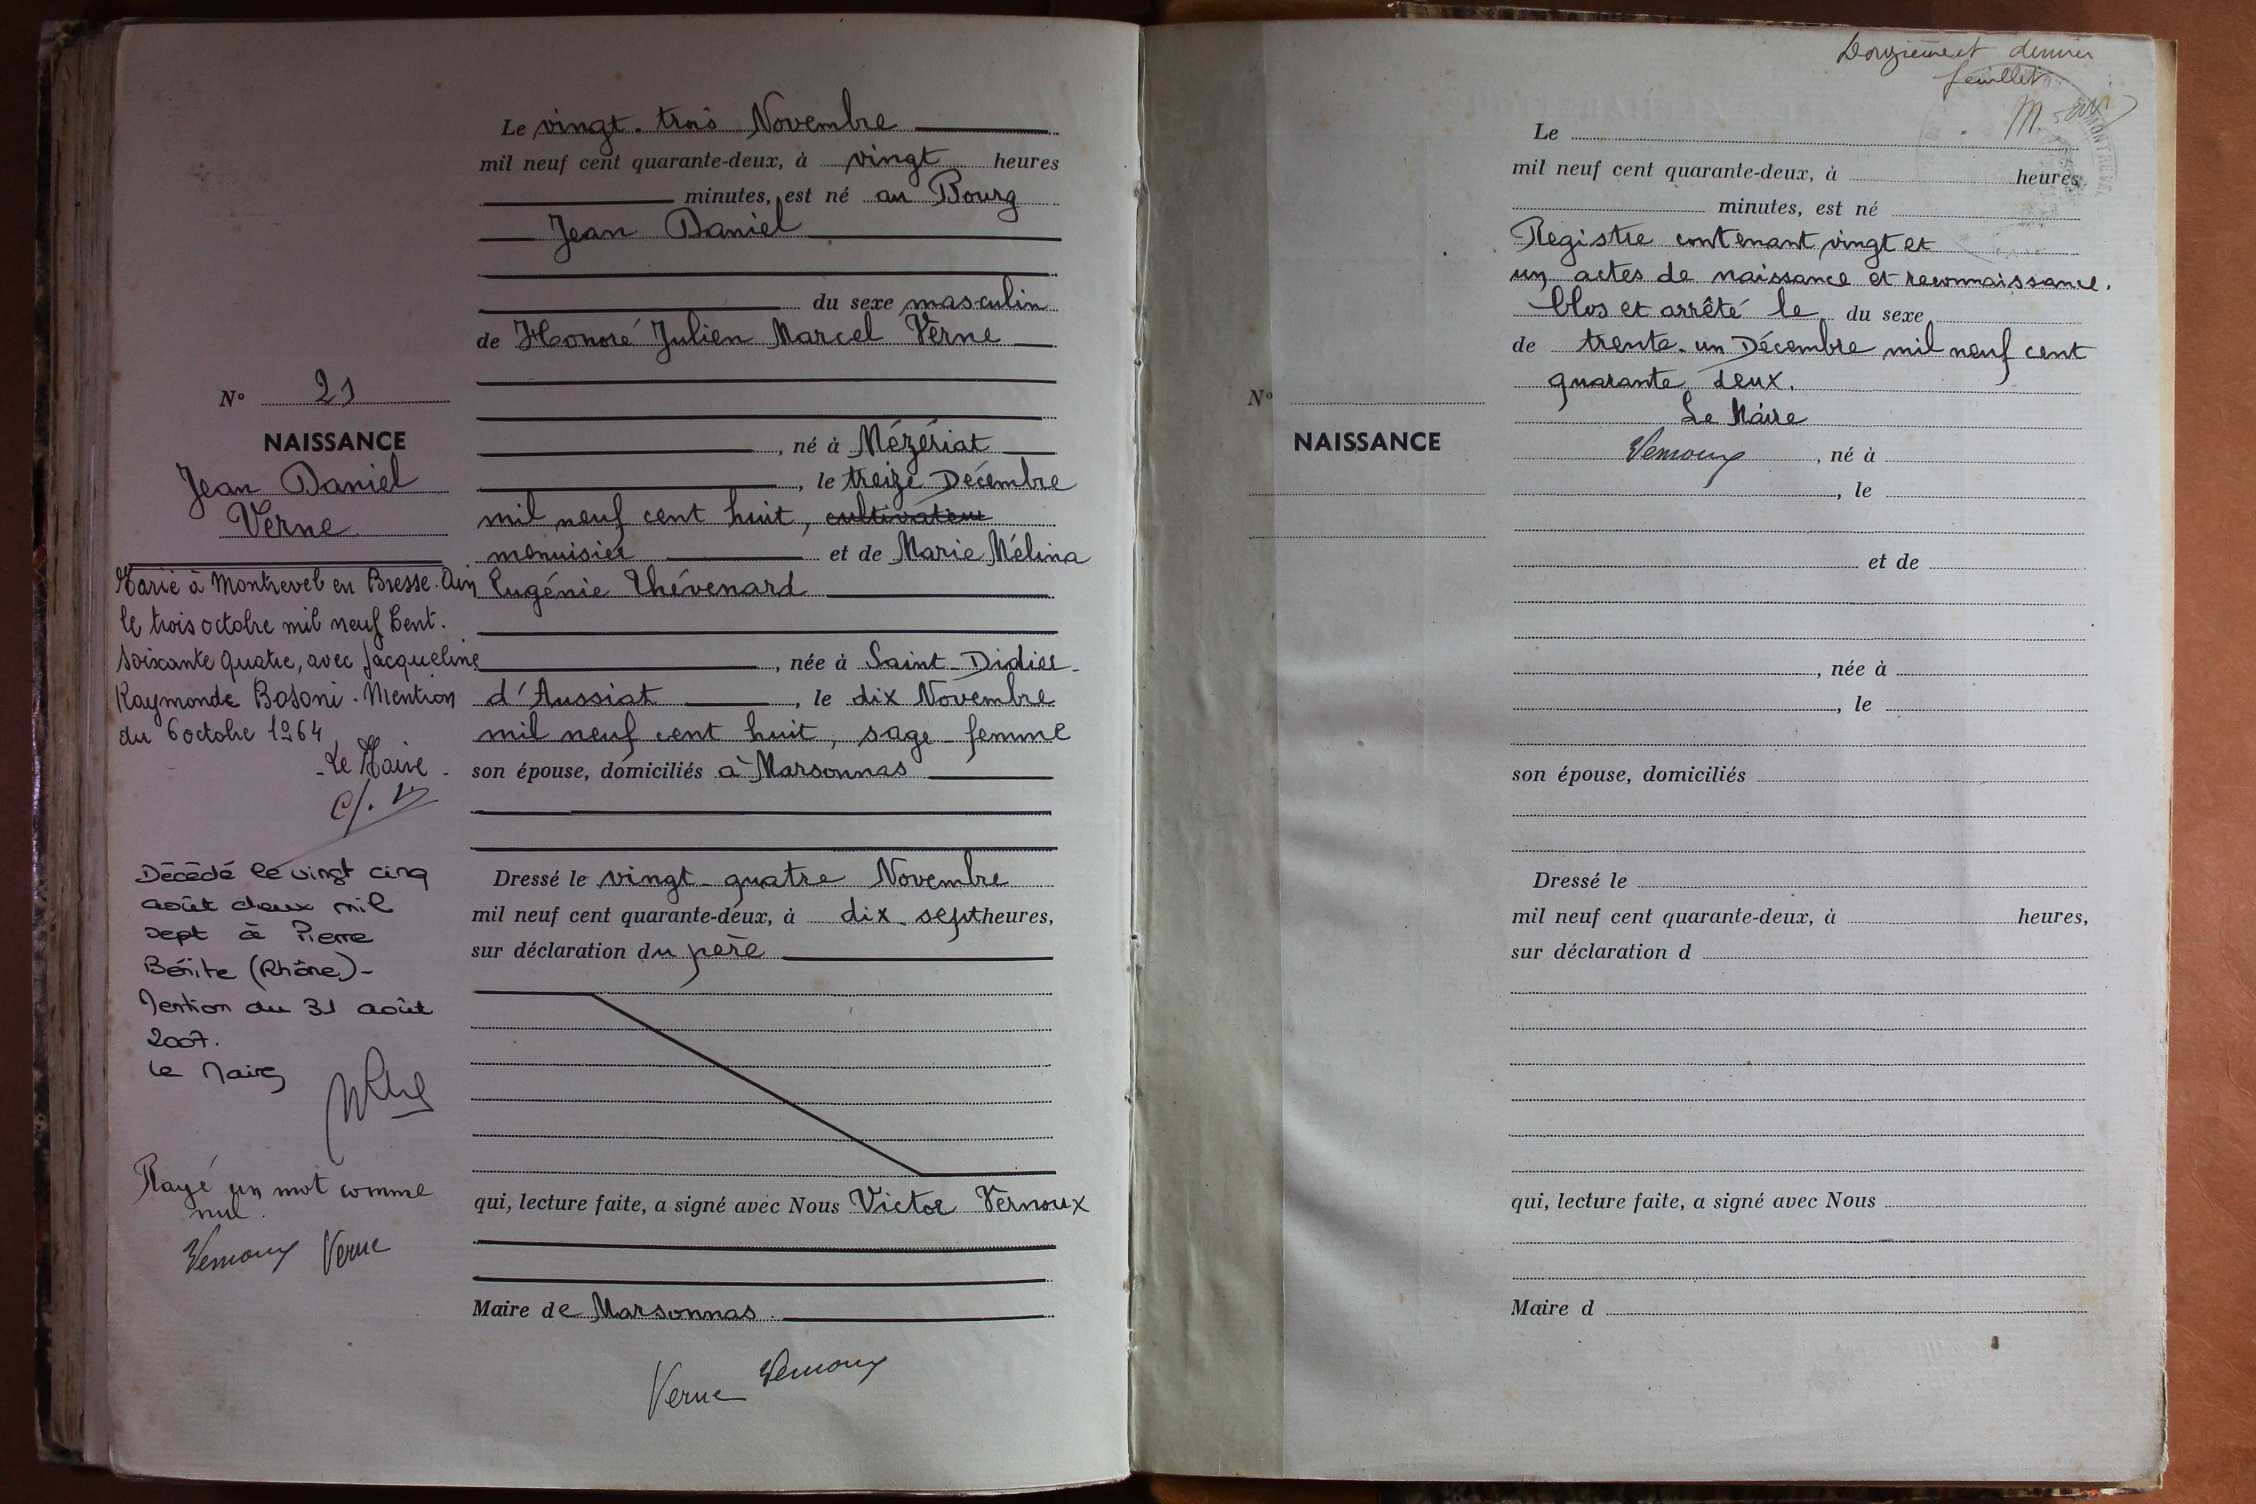 Le vingt-trois Novembre
mil neuf cent quarante-deux, à vingt heures
minutes, est né au Bourg
Jean Daniel
du sexe masculin
de Honoré Julien Marcel Verne
N° 21
NAISSANCE
Jean Daniel
Verne
, né à Mézériat
, le treize Décembre
mil neuf cent huit, cultivateur
menuisier et de Marie Mélina
Eugénie Thévenard
, née à Saint-Didier-
d'Aussiat, le dix Novembre
mil neuf cent huit, sage-femme
son épouse, domiciliés à Marsonnas
Dressé le vingt-quatre Novembre
mil neuf cent quarante-deux, à dix-sept heures,
sur déclaration du père
qui, lecture faite, a signé avec Nous Victor Vernoux
Maire de Marsonnas
Verne Vernoux
Marié à Montrevel en Bresse-Ain
le trois octobre mil neuf Cent.
Soixante quatre, avec Jacqueline
Raymonde Bosoni. Mention
du 6 octobre 1964
Le Maire
Décédé le vingt cinq
août deux mil
sept à Pierre
Bénite (Rhône)-
Mention du 31 août
2007.
Le Maire
Rayé un mot comme
nul.
Vernoux Verne
Douzième et dernier
feuillet
Le
mil neuf cent quarante-deux, à heures
minutes, est né
Registre contenant vingt et
un actes de naissance et reconnaissance.
Clos et arrêté le du sexe
de trente-un Décembre mil neuf cent
quarante deux.
Le Maire
N°
NAISSANCE
Vernoux , né à
, le
et de
, née à
, le
son épouse, domiciliés
Dressé le
mil neuf cent quarante-deux, à heures,
sur déclaration d
qui, lecture faite, a signé avec Nous
Maire d